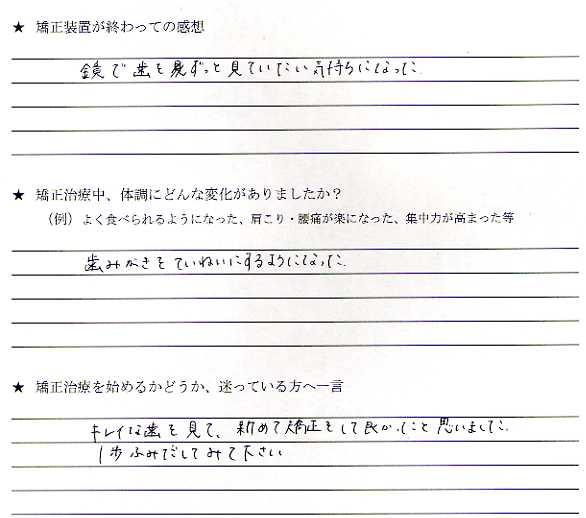 ★ 矯正装置が終わっての感想
鏡で歯をずっと見ていたい気持ちになった。
★ 矯正治療中、体調にどんな変化がありましたか？
（例）よく食べられるようになった、肩こり・腰痛が楽になった、集中力が高まった等
歯みがきをていねいにするようになった。
★ 矯正治療を始めるかどうか、迷っている方へ一言
キレイな歯を見て、初めて矯正をして良かったこと思いました。
1歩ふみだしてみて下さい